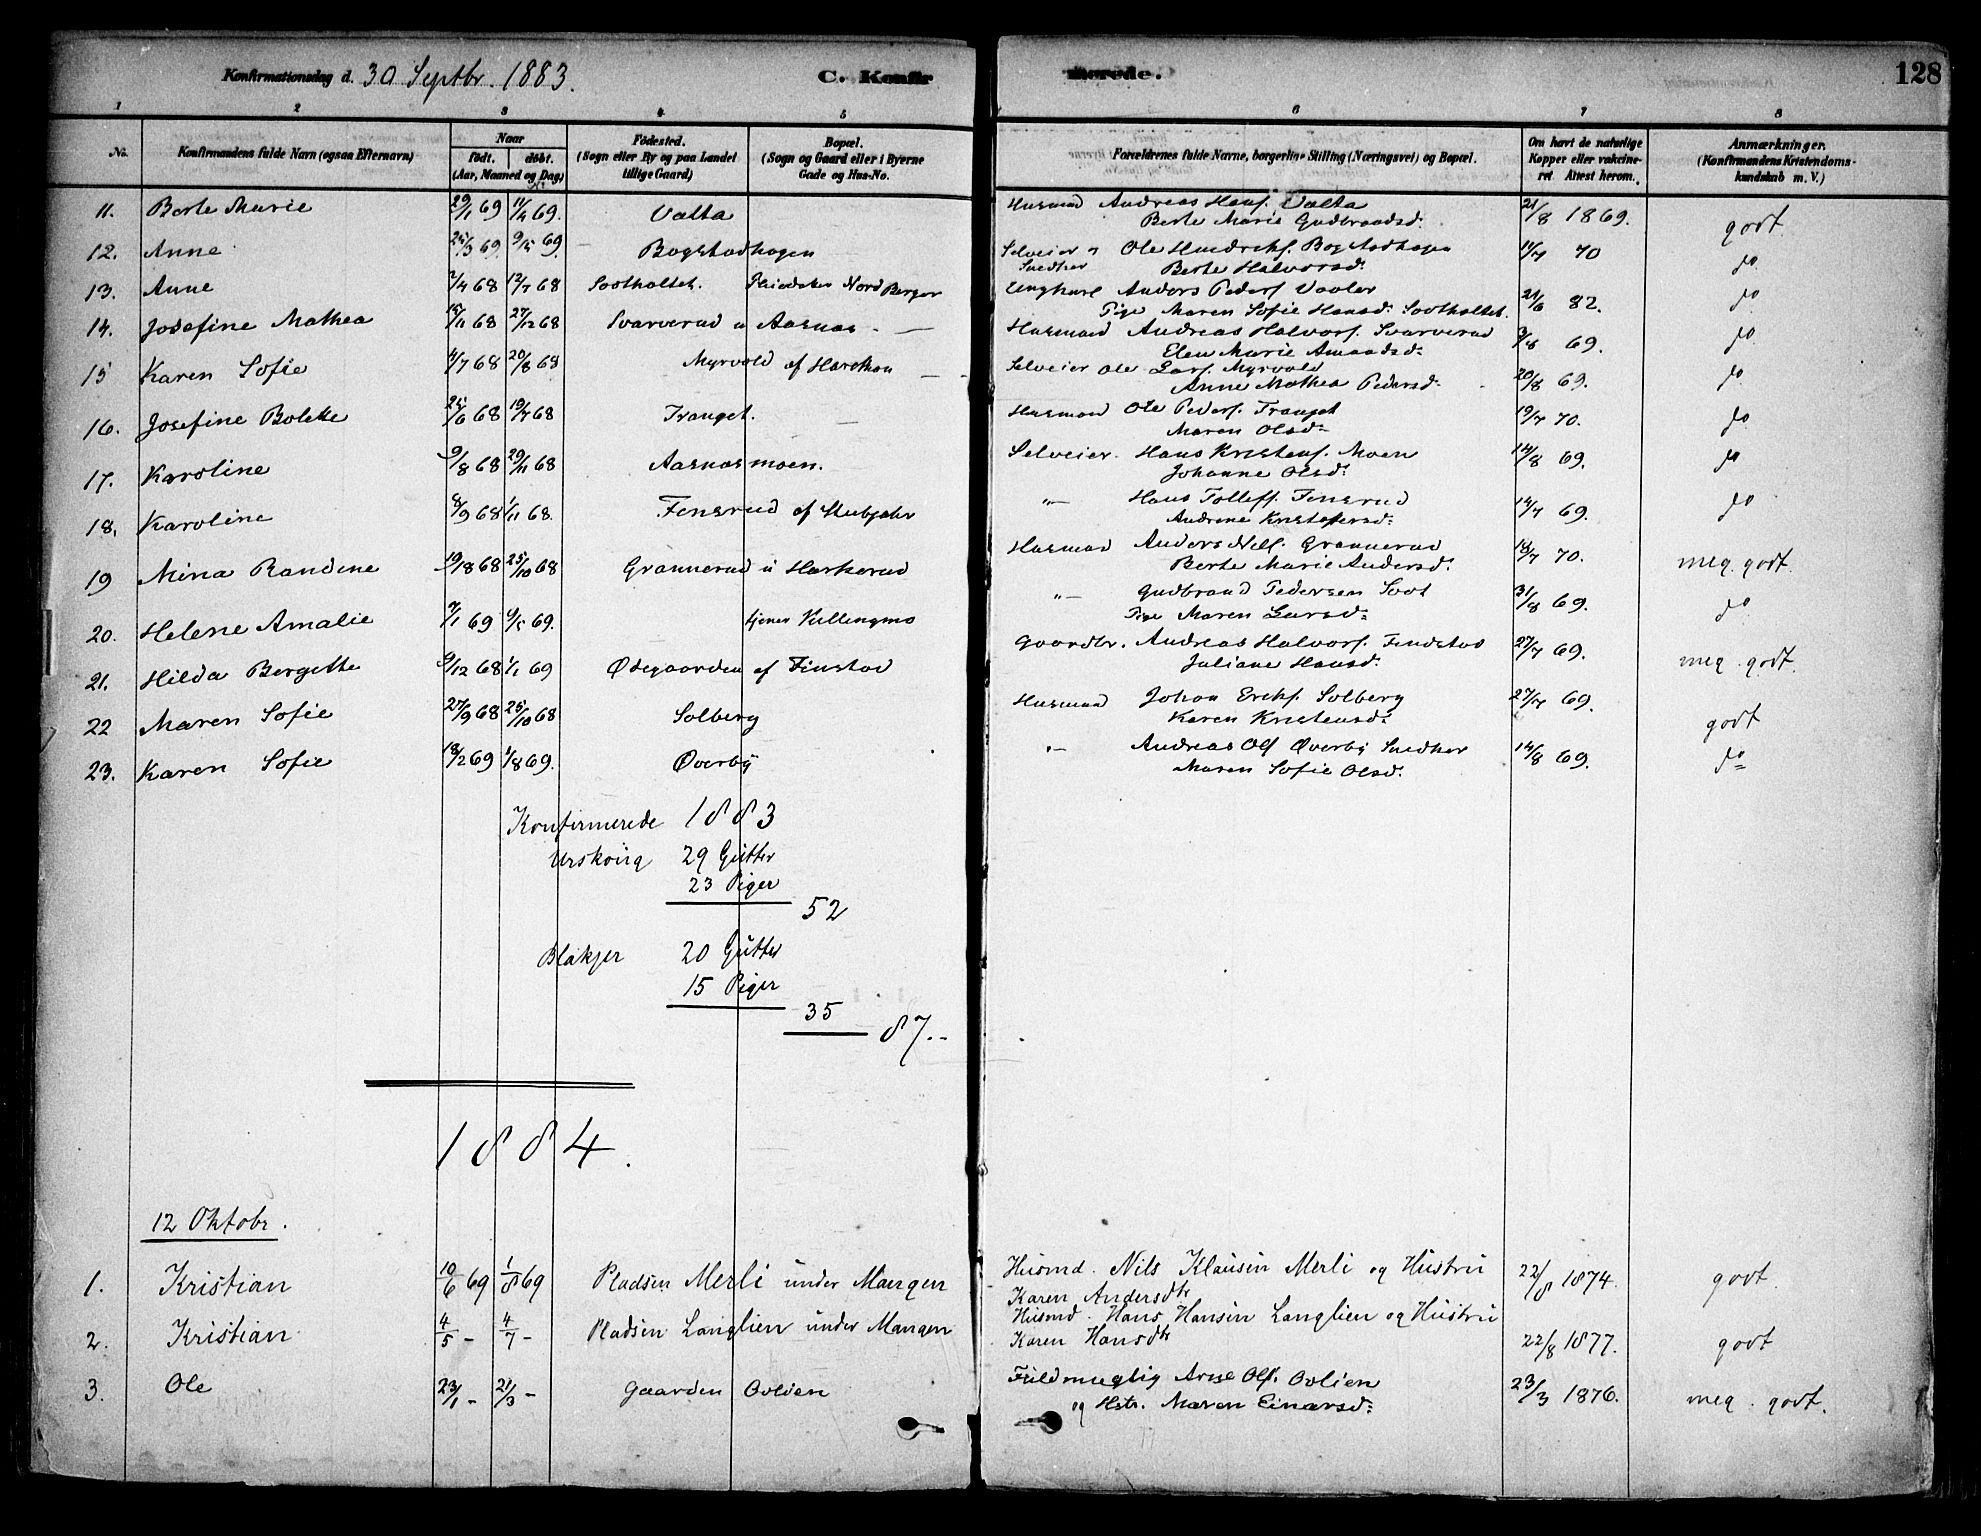 Konfirmationsdag d. 30 Septbr. 1883.
C. Konfir
merede.
128
1 2 3 4 5 6 7 8
No. Konfirmandens fulde Navn (ogsaa Efternavn) Naar født. døbt. (Aar, Maaned og Dag) Fødested. (Sogn eller By og paa Landet tillige Gaard) Bopæl. (Sogn og Gaard eller i Byerne Gade og Hus-No. Forældrenes fulde Navne, borgerlige Stilling (Næringsvei) og Bopæl. Om havt de naturlige Kopper eller vaccineret Attest herom. Anmærkninger. (Konfirmandens Kristendomskundskab m. V.)
11. Berte Marie 29/1 69 11/4 69. Valta Husmand Andreas Hansf. Valta 21/8 1869. godt
Berte Marie Gudbrandsd.
12. Anne 25/3 69 9/5 69. Bogstadhagen Selveier og Ole Hendreksf. Bogstadhagen 11/7 70 do
Snedker Berte Halvorsd.
13. Anne 2/4 68 12/7 68 Sootholtet. Nord Berger Ungkarl Anders Pedersf. Vaaler 21/6 82. do
Pige Maren Sofie Hansd. Sootholtet.
14. Josefine Mathea 15/11 68 27/12 68 Svarverud u Aarnas Husmand Andreas Halvorsf. Svarverud 3/8 69. do
Elen Marie Amundsd:
15 Karen Sofie 4/7 68 20/8 68 Myrvold af Harkhou Selveier Ole Larsf. Myrvold 20/8 69. do
Anne Mathea Pedersd.
16. Josefine Bolette 25/6 68 19/7 68 Tranget. Husmand Ole Pedersf. Tranget 19/7 70. do
Maren Olsd:
17. Karoline 9/8 68 29/11 68 Aarnasmoen. Selveier. Hans Kristensf. Moen 14/8 69. do
Johanne Olsd:
18. Karoline 8/9 68 1/11 68. Fensrud af "- Hans Tollefsf. Fensrud 14/7 69. do
Andrine Kristofersd:
19 Mina Randine 19/8 68 25/10 68 Grannerud u Harkerud Husmand Anders Nilsf. Grannerud 18/7 70. meg. godt.
Berte Marie Andersd.
20. Helene Amalie 7/1 69 6/5 69. tjener Killingmo "- Gudbrand Pedersen Soot 31/8 69. do
Pige Maren Larsd:
21. Hilda Bergette 9/12 68 1/1 69 Ødegaarden af Finstad Gaardbr. Andreas Halvorsf. Findstad 27/7 69. meg. godt.
Juliane Hansd:
22 Maren Sofie 27/9 68 25/10 68 Solberg Husmand Johan Eriksf. Solberg 27/7 69. godt
Karen Kristensd:
23. Karen Sofie 18/2 69 1/8 69. Øverby "- Andreas Olsf Øverby Snedker 14/8 69. do
Maren Sofie Olsd.
Konfirmerede 1883
Urskoug 29 Gutter
23 Piger
52
Blakjer 20 Gutter
15 Piger
35
87.-
1884.
12 Oktobr.
1. Kristian 10/6 69 1/8 69 Pladsen Merli under Mangen Husmd. Nils Klausen Merli og Hustru 22/8 1874. godt
Karen Andersdtr
2. Kristian 4/5 - 4/7 - Pladsen Langlien under Mangen Husmd. Hans Hansen Langlien og Hustru 22/8 1877. godt
Karen Hansdtr
3. Ole 23/1 - 21/3 - Gaarden Ovlien Fuldmægtig Arne Olsf. Ovlien 23/3 1876. meg. godt.
og Hstr. Maren Einarsd: